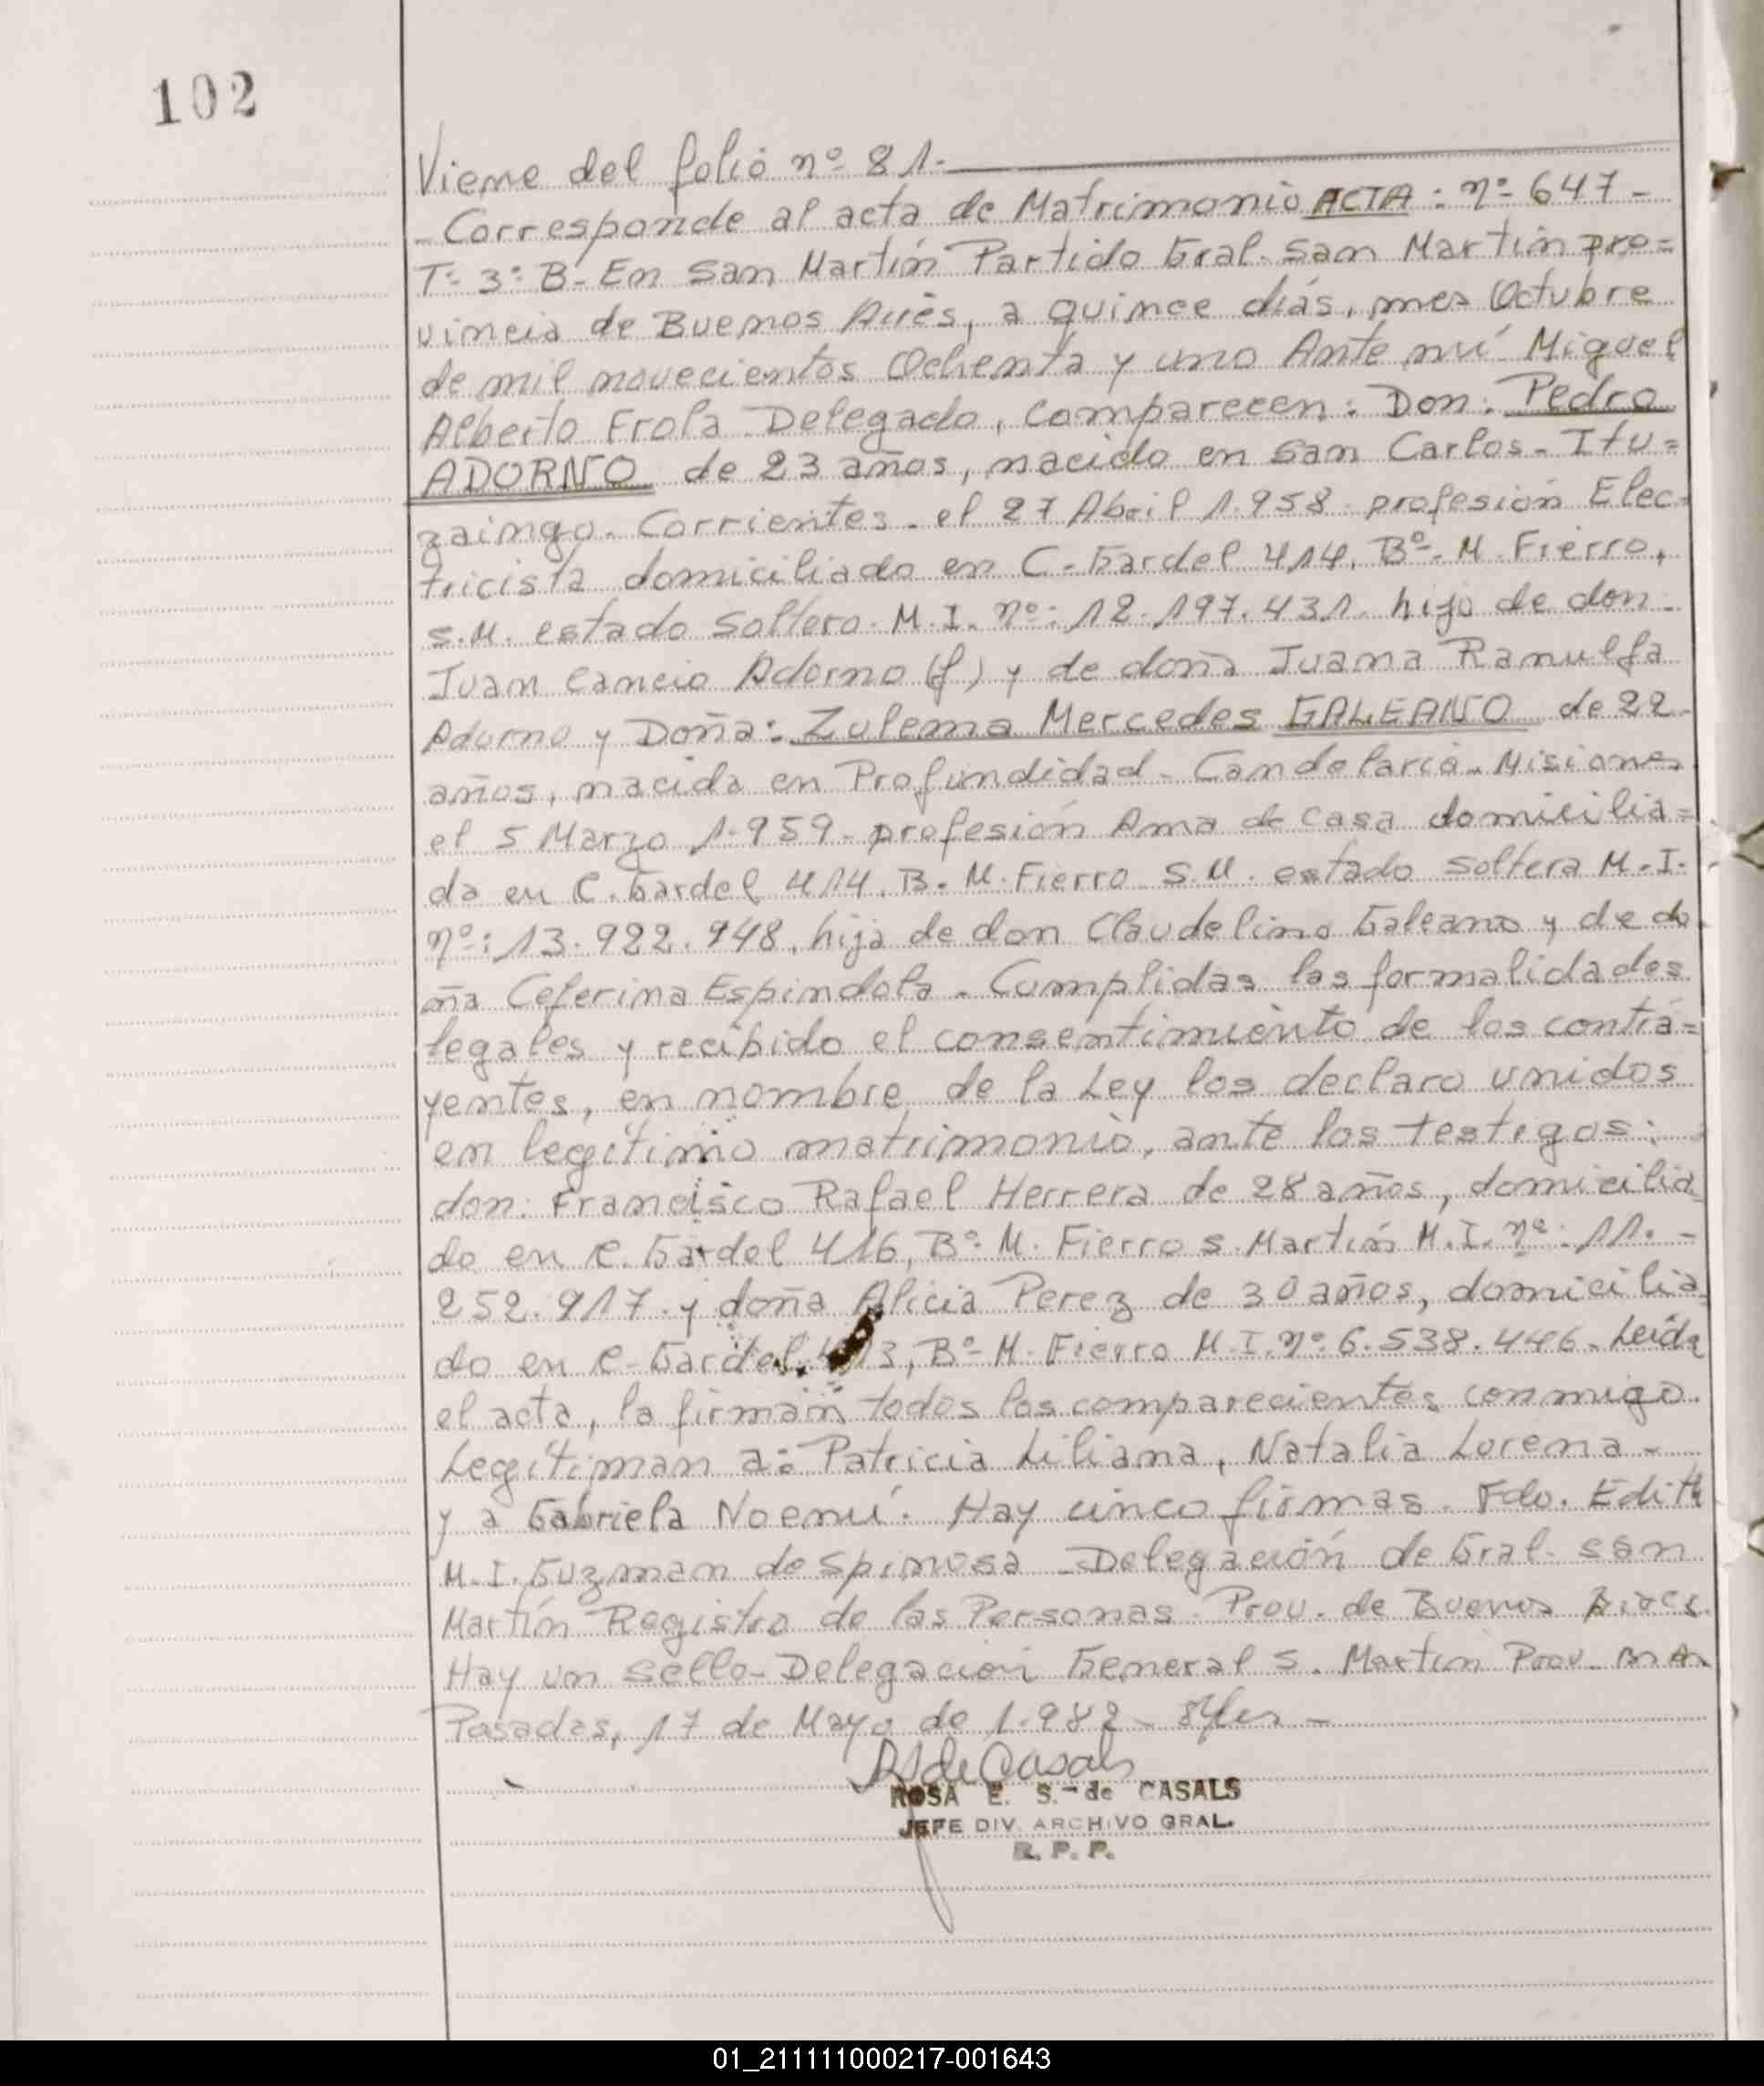 102
Viene del folio nº 81.
- Corresponde al acta de Matrimonio ACTA: nº 647 -
Tº 3º B- En San Martín Partido Gral. San Martín pro=
vincia de Buenos Aires, a quince días, mes Octubre
de mil novecientos Ochenta y uno Ante mí Miguel
Alberto Frola Delegado, Comparecen: Don: Pedro
ADORNO de 23 años, nacido en San Carlos - Itu=
zaingo. Corrientes. el 27 Abril 1.958. profesión Elec=
tricista domiciliado en C. Gardel 414. Bº. M. Fierro,
S.M. estado soltero. M.I. nº: 12.197.431. hijo de don
Juan Cancio Adorno (f) y de doña Juana Ranulfa
Adorno y Doña: Zulema Mercedes GALEANO de 22
años, nacida en Profundidad - Candelaria - Misiones
el 5 Marzo 1.959 - profesión Ama de Casa domicilia=
da en C. Gardel 414. B. M. Fierro S.M. estado soltera M.I.
nº: 13.922.948, hija de don Claudelino Galeano y de do
ña Ceferina Espindola. Cumplidas las formalidades
legales y recibido el consentimiento de los contra=
yentes, en nombre de la Ley los declaro unidos
en legítimo matrimonio, ante los testigos:
don: Francisco Rafael Herrera de 28 años, domicilia
do en C. Gardel 416, Bº. M. Fierro S. Martín M.I. nº: 11. -
252.917. y doña Alicia Perez de 30 años, domicilia
do en C. Gardel, 13, Bº M. Fierro M.I. nº 6.538.446. Leída
el acta, la firman todos los comparecientes conmigo.
Legítiman a: Patricia Liliana, Natalia Lorena -
y a Gabriela Noemí. Hay cinco firmas. Fdo. Edith
M.I. Guzman de Spinosa - Delegación de Gral. San
Martín Registro de las Personas. Prov. de Buenos Aires.
Hay un sello - Delegación General S. Martín Prov.
Posadas, 17 de Mayo de 1.982 -
RS de Casals
ROSA E. S. de CASALS
JEFE DIV. ARCHIVO GRAL.
R. P. P.
01_211111000217-001643